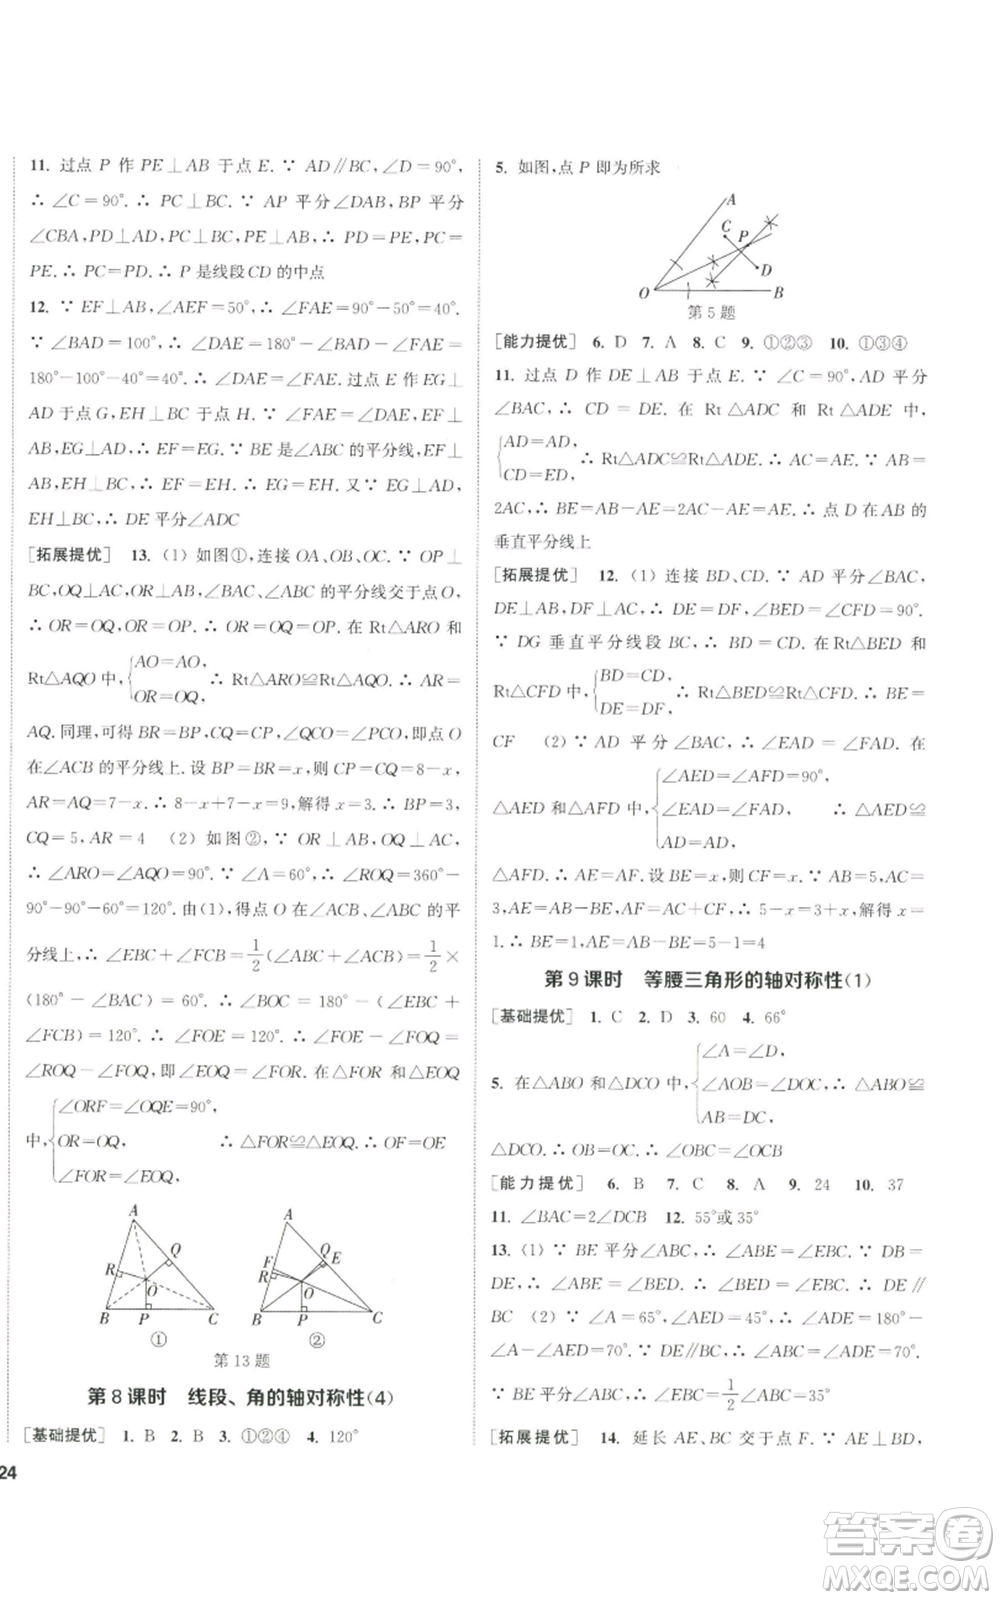 11. 过点 P 作 PE⊥AB 于点 E. ∵ AD∥BC,∠D=90°,
∴ ∠C=90°. ∴ PC⊥BC. ∵ AP 平分∠DAB,BP 平分
∠CBA,PD⊥AD,PE⊥AB,∴ PD=PE,PC=
PE. ∴ PC=PD. ∴ P 是线段CD 的中点
12. ∵ EF⊥AB,∠AEF=50°,∴ ∠FAE=90°-50°=40°.
∵ ∠BAD=100°,∴ ∠DAE=180°-∠BAD-∠FAE=
180°-100°-40°=40°. ∴ ∠DAE=∠FAE. 过点 E 作 EG⊥
AD 于点 G,EH⊥BC 于点 H. ∵ ∠FAE=∠DAE,EF⊥
AB,EG⊥AD,∴ EF=EG. ∵ BE 是∠ABC 的平分线,EF⊥
AB,EH⊥BC,∴ EF=EH. ∴ EG=EH. 又∵ EG⊥AD,
EH⊥BC,∴ DE 平分∠ADC
[拓展提优] 13. (1) 如图①,连接 OA、OB、OC. ∵ OP⊥
BC,OQ⊥AC,OR⊥AB,∠BAC、∠ABC 的平分线交于点 O,
∴ OR=OQ,OR=OP. ∴ OR=OQ=OP. 在 Rt△ARO 和
Rt△AQO 中,{AO=AO, OR=OQ, ∴ Rt△ARO≌Rt△AQO. ∴ AR=
AQ. 同理,可得 BR=BP,CQ=CP,∠QCO=∠PCO,即点 O
在∠ACB 的平分线上. 设 BP=BR=x,则 CP=CQ=8-x,
AR=AQ=7-x. ∴ 8-x+7-x=9,解得 x=3. ∴ BP=3,
CQ=5,AR=4 (2) 如图②,∵ OR⊥AB,OQ⊥AC,
∴ ∠ARO=∠AQO=90°. ∵ ∠A=60°,∴ ∠ROQ=360°-
90°-90°-60°=120°. 由(1),得点 O 在∠ACB、∠ABC 的平
分线上,∴ ∠EBC+∠FCB=1/2(∠ABC+∠ACB)=1/2×
(180°-∠BAC)=60°. ∴ ∠BOC=180°-(∠EBC+
∠FCB)=120°. ∴ ∠FOE=120°. ∴ ∠FOE-∠FOQ=
∠ROQ-∠FOQ,即∠EOQ=∠FOR. 在△FOR 和△EOQ
中,{∠ORF=∠OQE=90°, OR=OQ, ∠FOR=∠EOQ, ∴ △FOR≌△EOQ. ∴ OF=OE
A
Q
R
O
B
P
C
①
A
F
Q
E
R
O
B
P
C
②
第13题
第 8 课时 线段、角的轴对称性(4)
[基础提优] 1. B 2. B 3. ①②④ 4. 120°
24
5. 如图,点 P 即为所求
A
C
P
D
O
B
第5题
[能力提优] 6. D 7. A 8. C 9. ①②③ 10. ①③④
11. 过点 D 作 DE⊥AB 于点 E. ∵ ∠C=90°,AD 平分
∠BAC,∴ CD=DE. 在 Rt△ADC 和 Rt△ADE 中,
{AD=AD, CD=ED, ∴ Rt△ADC≌Rt△ADE. ∴ AC=AE. ∵ AB=
2AC,∴ BE=AB-AE=2AC-AC=AE. ∴ 点 D 在AB 的
垂直平分线上
[拓展提优] 12. (1) 连接 BD、CD. ∵ AD 平分∠BAC,
DE⊥AB,DF⊥AC,∴ DE=DF,∠BED=∠CFD=90°.
∵ DG 垂直平分线段 BC,∴ BD=CD. 在Rt△BED 和
Rt△CFD 中,{BD=CD, DE=DF, ∴ Rt△BED≌Rt△CFD. ∴ BE=
CF (2) ∵ AD 平分∠BAC,∴ ∠EAD=∠FAD. 在
△AED 和△AFD 中,{∠AED=∠AFD=90°, ∠EAD=∠FAD, AD=AD, ∴ △AED≌
△AFD. ∴ AE=AF. 设 BE=x,则 CF=x. ∵ AB=5,AC=
3,AE=AB-BE,AF=AC+CF,∴ 5-x=3+x,解得 x=
1. ∴ BE=1,AE=AB-BE=5-1=4
第 9 课时 等腰三角形的轴对称性(1)
[基础提优] 1. C 2. D 3. 60 4. 66°
5. 在△ABO 和△DCO 中,{∠A=∠D, ∠AOB=∠DOC, AB=DC, ∴ △ABO≌
△DCO. ∴ OB=OC. ∴ ∠OBC=∠OCB
[能力提优] 6. B 7. C 8. A 9. 24 10. 37
11. ∠BAC=2∠DCB 12. 55°或35°
13. (1) ∵ BE 平分∠ABC,∴ ∠ABE=∠EBC. ∵ DB=
DE,∴ ∠ABE=∠BED. ∴ ∠BED=∠EBC. ∴ DE∥
BC (2) ∵ ∠A=65°,∠AED=45°,∴ ∠ADE=180°-
∠A-∠AED=70°. ∵ DE∥BC,∴ ∠ABC=∠ADE=70°.
∵ BE 平分∠ABC,∴ ∠EBC=1/2∠ABC=35°
[拓展提优] 14. 延长 AE、BC 交于点 F. ∵ AE⊥BD,
答案卷
MXQE.COM